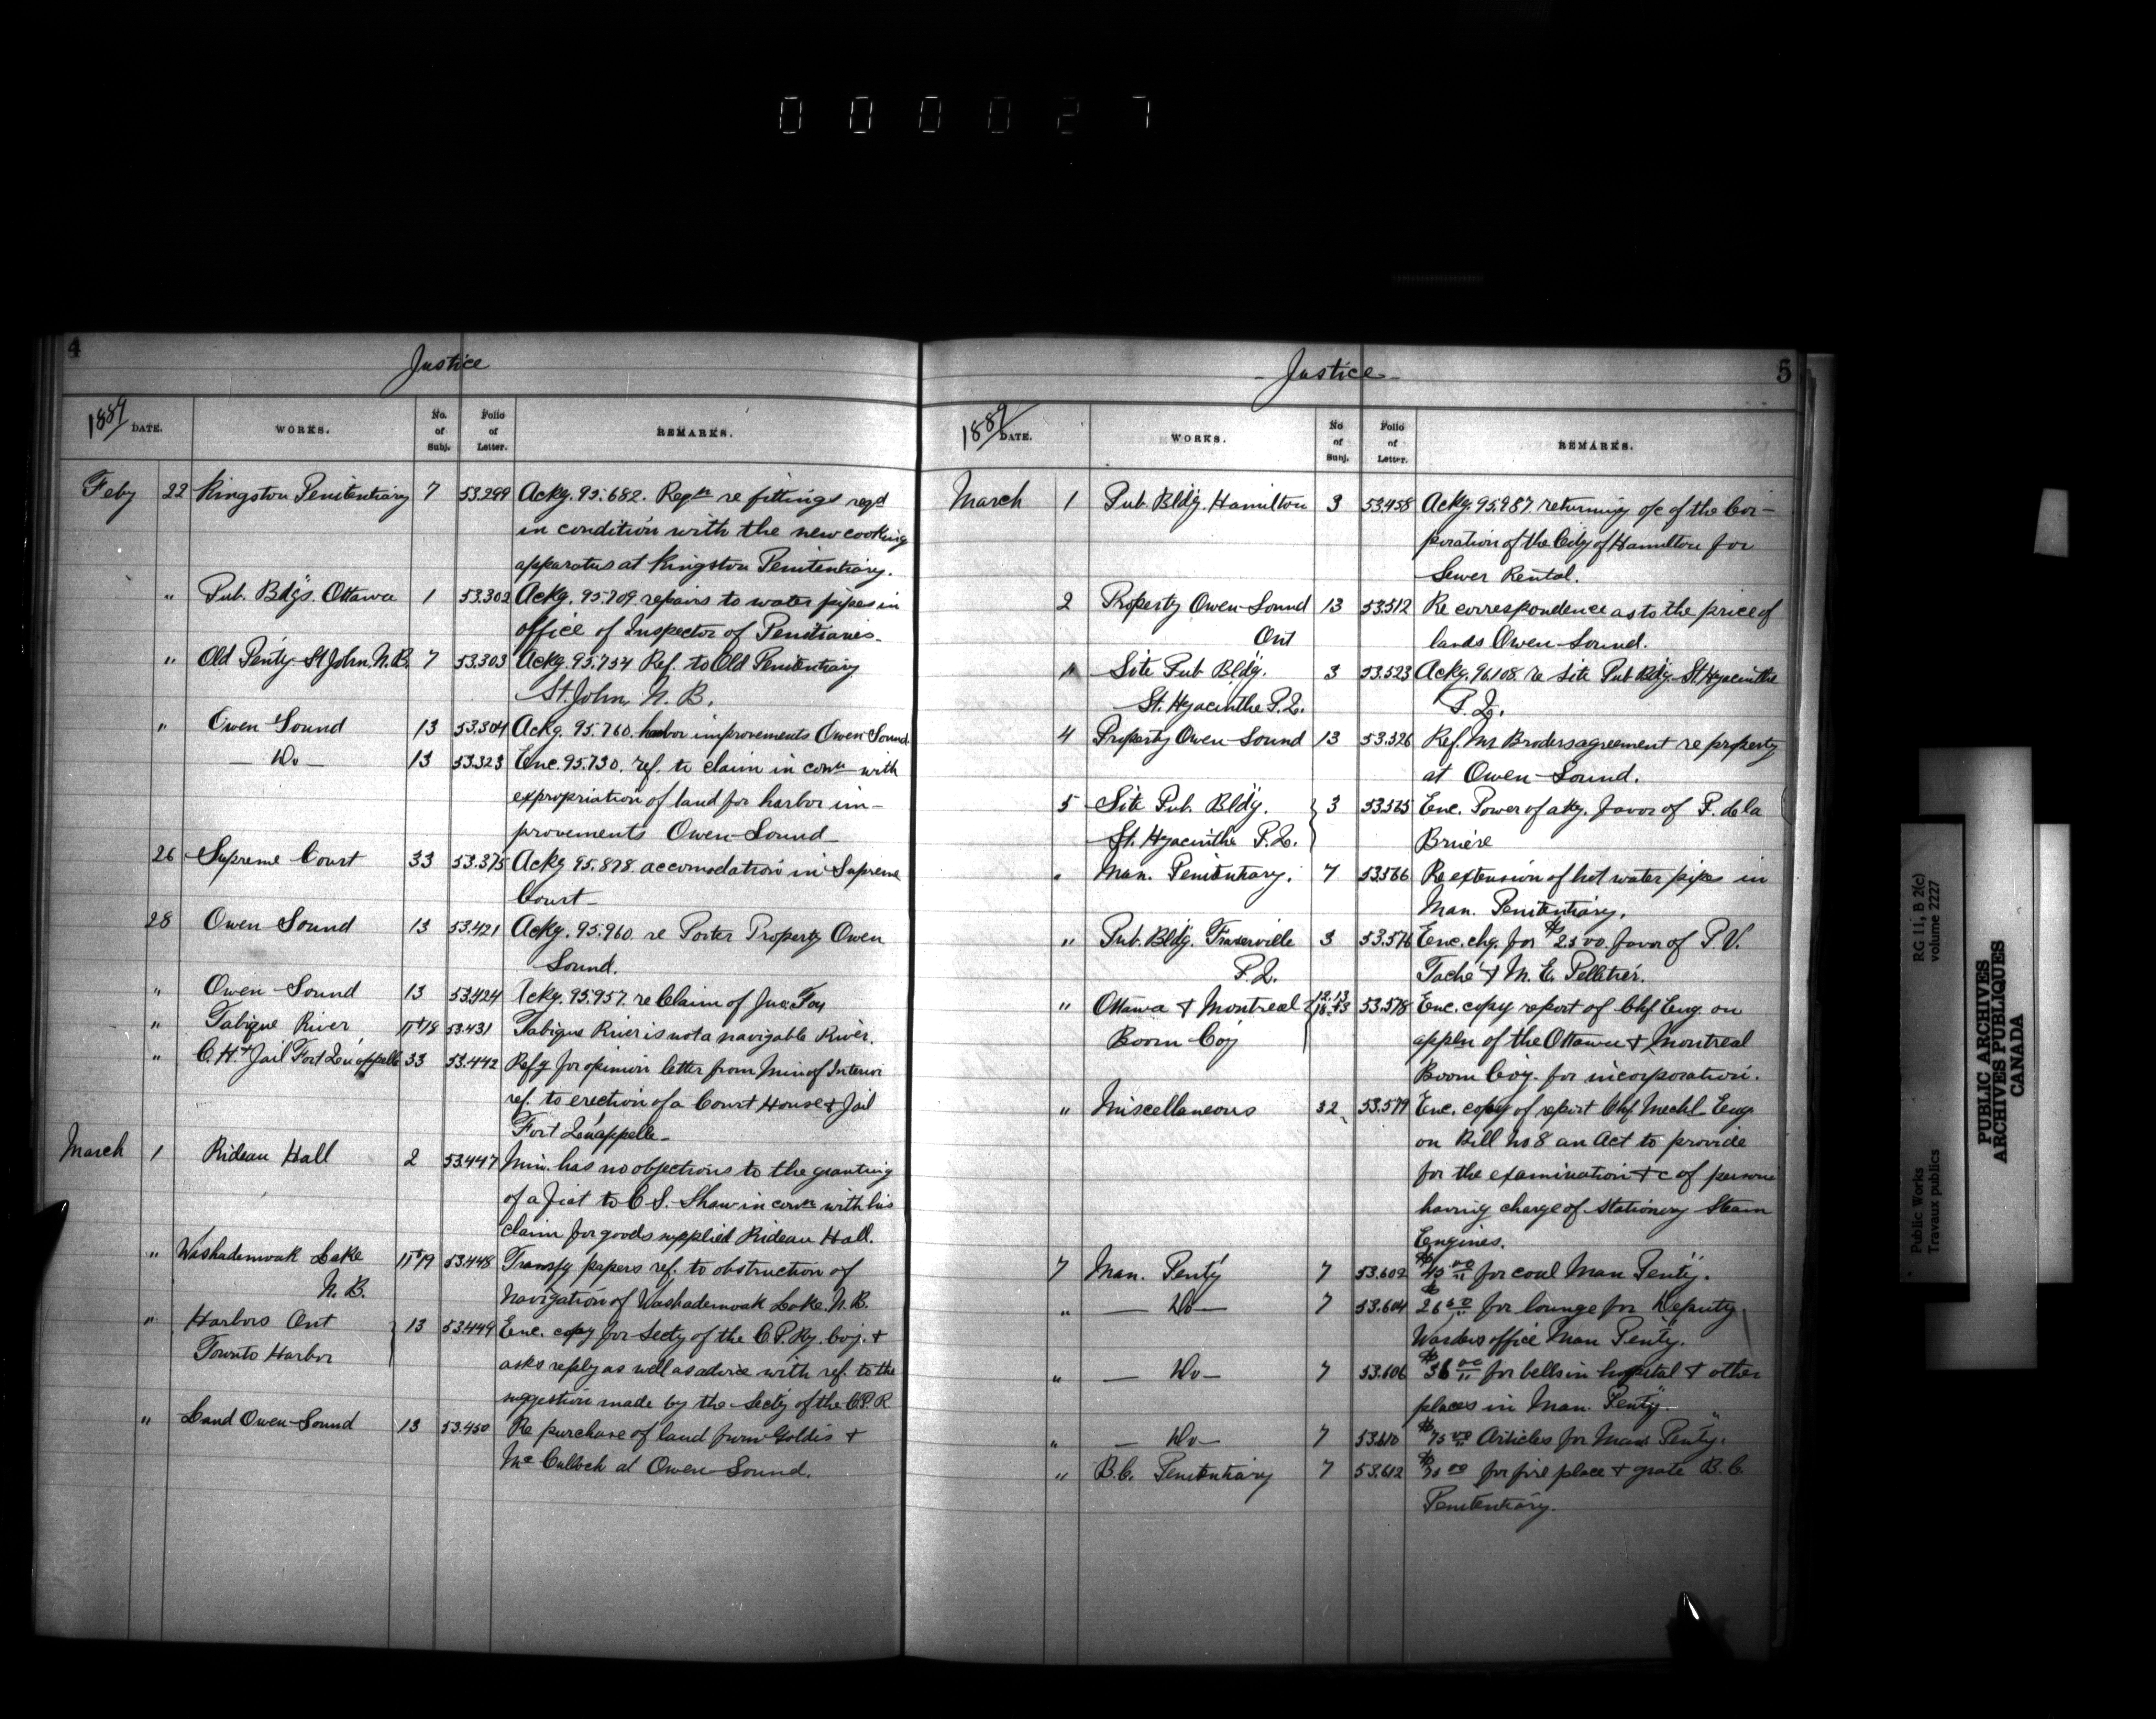 000027
4
Justice
1889 DATE. WORKS. No. of Subj. Folio of Letter. REMARKS.
Feby 22 Kingston Penitentiary 7 53.299 Ackg. 95.682. Reqn re fittings reqd
in condition with the new cooking
apparatus at Kingston Penitentiary.
" Pub. Bdgs. Ottawa 1 53.302 Ackg. 95.709. repairs to water pipes in
office of Inspector of Penitiaries.
" Old Penty St John, N.B. 7 53.303 Ackg. 95.754 Ref. to Old Penitentiary
St. John, N. B.
" Owen Sound 13 53.304 Ackg. 95.760. harbor improvements Owen Sound
— Do — 13 53.323 Enc. 95.730. ref. to claim in conn with
expropriation of land for harbor im-
provements Owen-Sound
26 Supreme Court 33 53.375 Ackg 95.878. accomodation in Supreme
Court
28 Owen Sound 13 53.421 Ackg. 95.960 re Porter Property Owen
Sound.
" Owen-Sound 13 53.424 Ackg. 95.957. re Claim of Jno. Foy
" Tabique River 11+18 53.431 Tabique River is not a navigable River.
" C. H. + Jail Fort Qu'appelle 33 53.442 Refg for opinion letter from Min of Interior
ref. to erection of a Court House + Jail
Fort Qu'appelle
March 1 Rideau Hall 2 53.447 Min. has no objections to the granting
of a fiat to C S. Shaw in conn with his
claim for goods supplied Rideau Hall.
" Washademoak Lake 11+19 53.448 Transfg papers ref. to obstruction of
N. B. navigation of Washademoak Lake. N. B.
" Harbors Ont 13 53.449 Enc. copy for Secty of the C.P. Ry. Coy. +
Toronto Harbor asks reply as well as advice with ref. to the
suggestion made by the Secty of the C.P.R
" Land Owen-Sound 13 53.450 Re purchase of land from Goldis +
McCulloch at Owen-Sound.
5
- Justice -
1889 DATE. WORKS. No of Subj. Folio of Letter. REMARKS.
March 1 Pub Bldg. Hamilton 3 53.458 Ackg. 95.987. returning o/c of the Cor-
poration of the City of Hamilton for
Sewer Rental.
2 Property Owen-Sound 13 53.512 Re correspondence as to the price of
Ont lands Owen-Sound.
" Site Pub Bldg. 3 53.523 Ackg. 96.108. re site Pub Bldg. St. Hyacinthe
St. Hyacinthe P.Q. P.Q.
4 Property Owen-Sound 13 53.526 Ref. Mr Broders agreement re property
at Owen-Sound.
5 Site Pub. Bldg. 3 Enc. Power of atty. favor of P. de la
St. Hyacinthe P.Q. Bruère
" Man. Penitentiary. 7 53.566 Re extension of hot water pipes in
Man. Penitentiary.
" Pub. Bldg. Fraserville 3 53.576 Enc. chq. for favor of P. V.
P.Q. Taché + M. E. Pelletier.
" Ottawa + Montreal 53.578 Enc. copy report of Chf Eng. on
Boom Coy appln of the Ottawa + Montreal
Boom Coy. for incorporation.
" Miscellaneous 32 53.579 Enc. copy of report Chf. Mechl. Eng.
on Bill No 8 an Act to provide
for the examination +c of persons
having charge of Stationery Steam
Engines.
7 Man. Penty 7 53.602 for coal Man Penty.
" — Do — 7 53.604 for lounge for Deputy
Wardens office Man Penty.
" — Do — 7 53.606 $36 00 for bells in hospital + other
places in Man. Penty.
" — Do — 7 53.610 $75 00 Articles for Man Penty.
" B.C. Penitentiary 7 53.612 for fire place + grate B. C.
Penitentiary.
Public Works
Travaux publics
RG 11, B 2(c)
volume 2227
PUBLIC ARCHIVES
ARCHIVES PUBLIQUES
CANADA